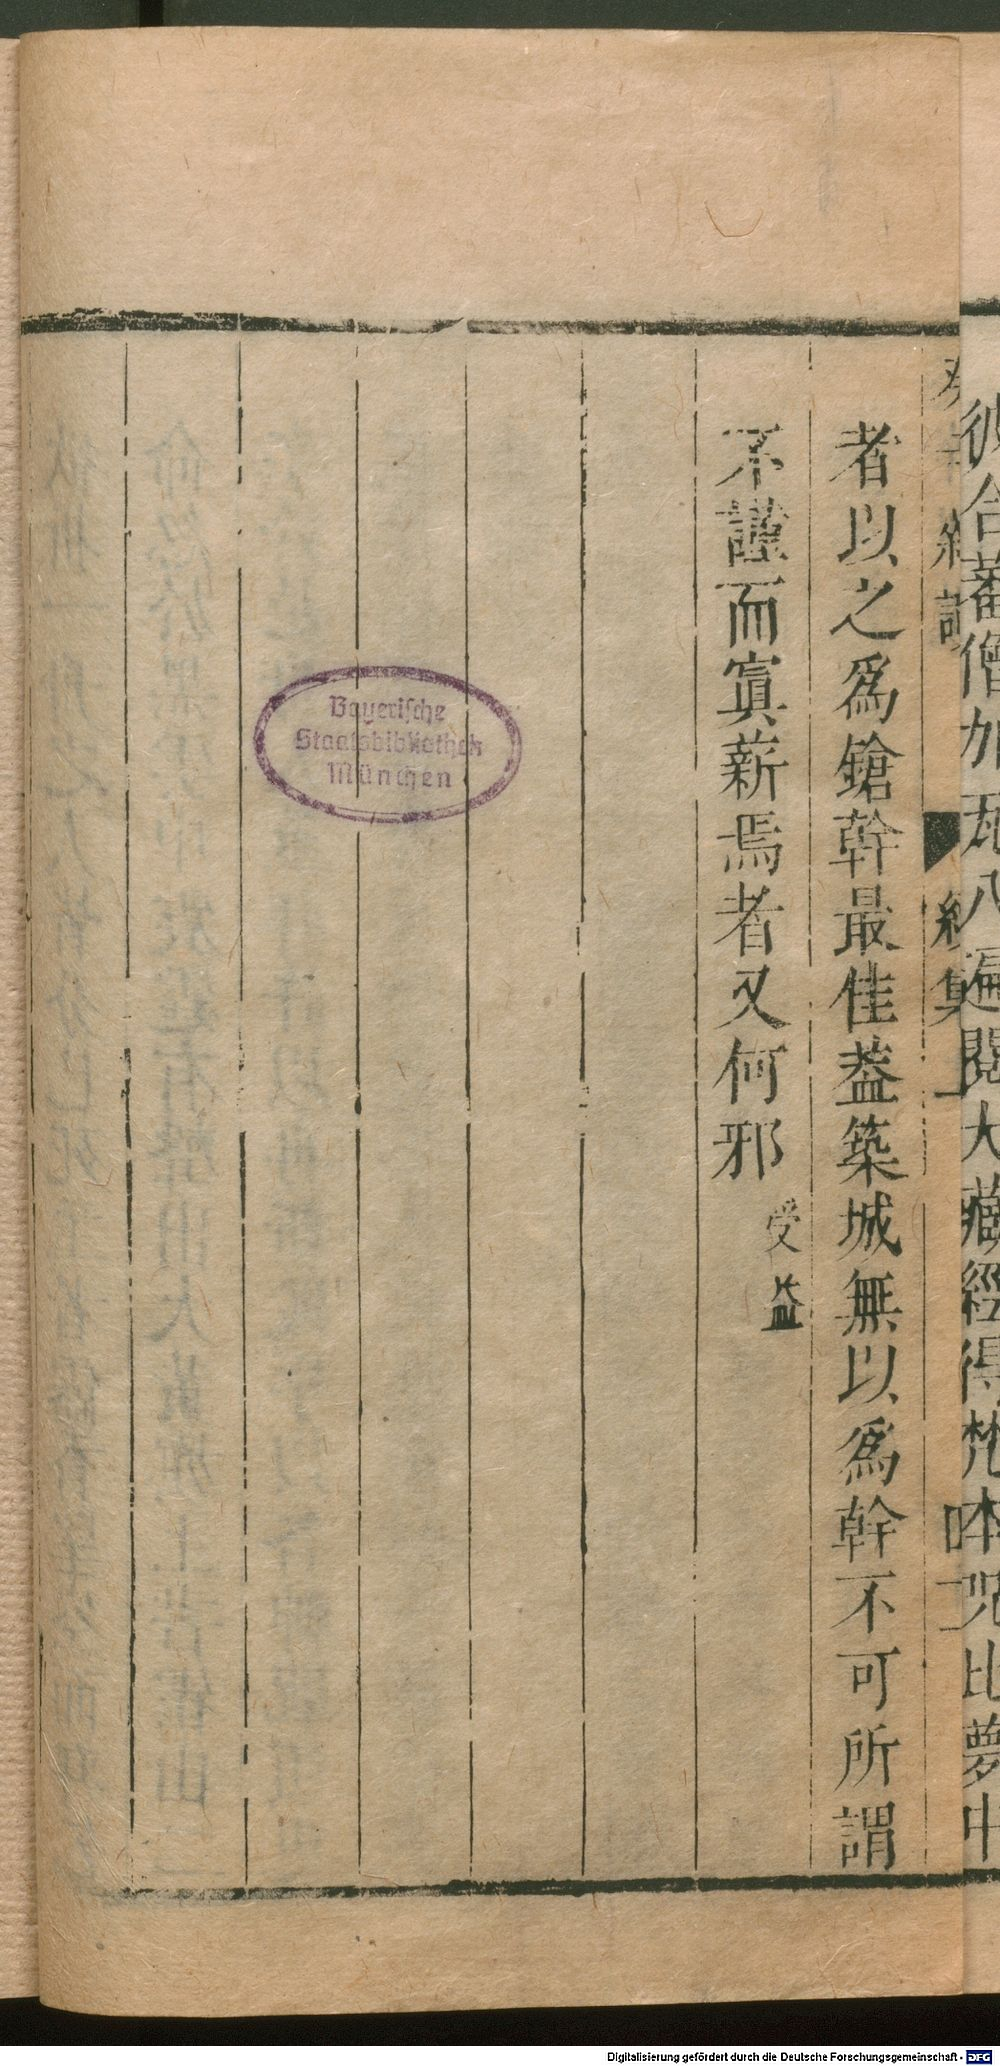 彼合蕃僧加瓦八遍閱大藏經得梵本咒比夢中
癸辛雜識
續集
者以之爲鎗幹最佳葢築城無以爲幹不可所謂
不謹而寘薪焉者又何邪 受益
Bayerische
Staatsbibliothek
München
Digitalisierung gefördert durch die Deutsche Forschungsgemeinschaft - DFG